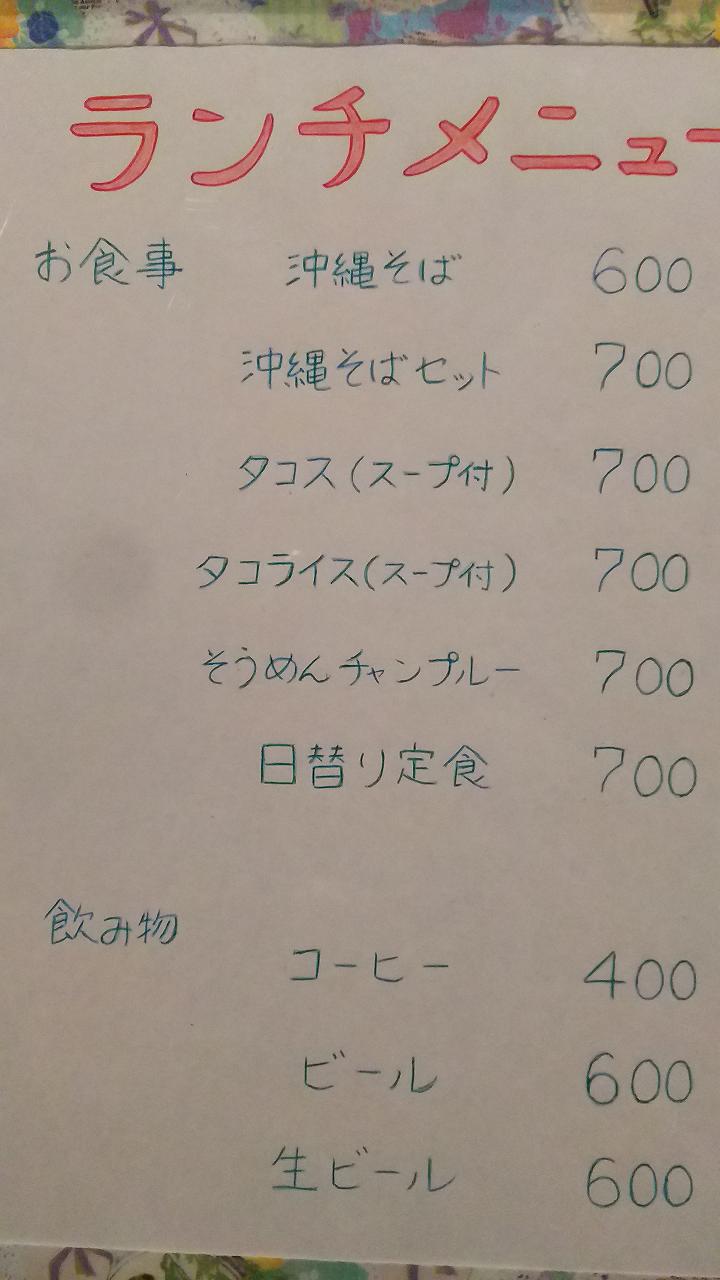 ランチメニュー
お食事 沖縄そば 600
沖縄そばセット 700
タコス(スープ付) 700
タコライス(スープ付) 700
そうめんチャンプルー 700
日替り定食 700
飲み物
コーヒー 400
ビール 600
生ビール 600